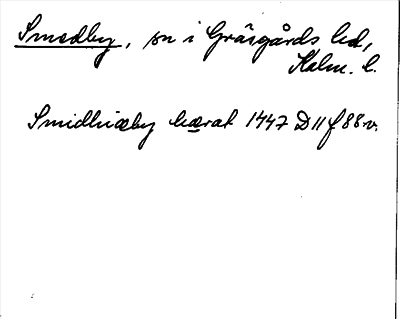 Smedby, sn i Gräsgårds hd,
Kalm. l.
Smidhiæby hærat 1447 D 11 f 88 v.